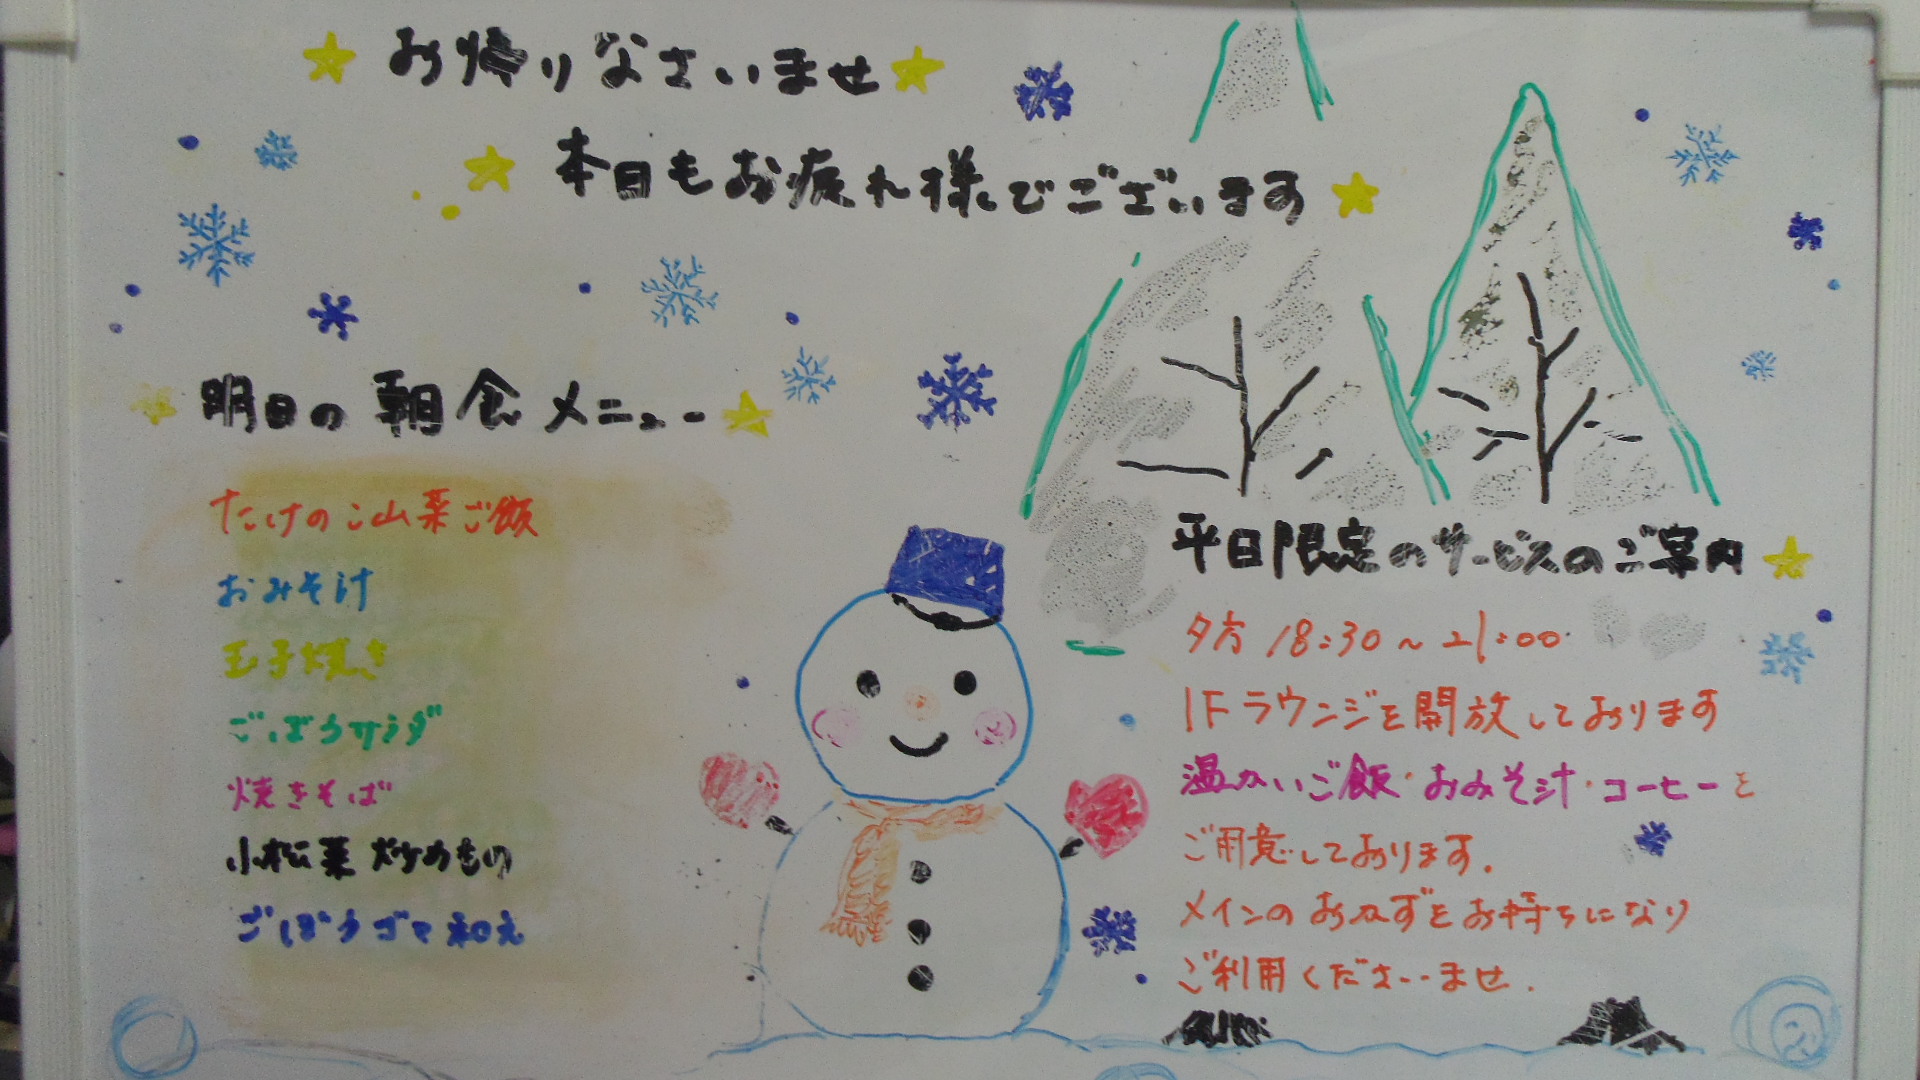 お帰りなさいませ
本日もお疲れ様でございます
明日の朝食メニュー
たけのこ山菜ご飯
おみそ汁
玉子焼き
ごぼうサラダ
焼きそば
小松菜炒めもの
ごぼうゴマ和え
平日限定のサービスのご案内
夕方 18:30～21:00
1Fラウンジを開放しております
温かいご飯・おみそ汁・コーヒーを
ご用意しております.
メインのおかずをお持ちになり
ご利用くださいませ.